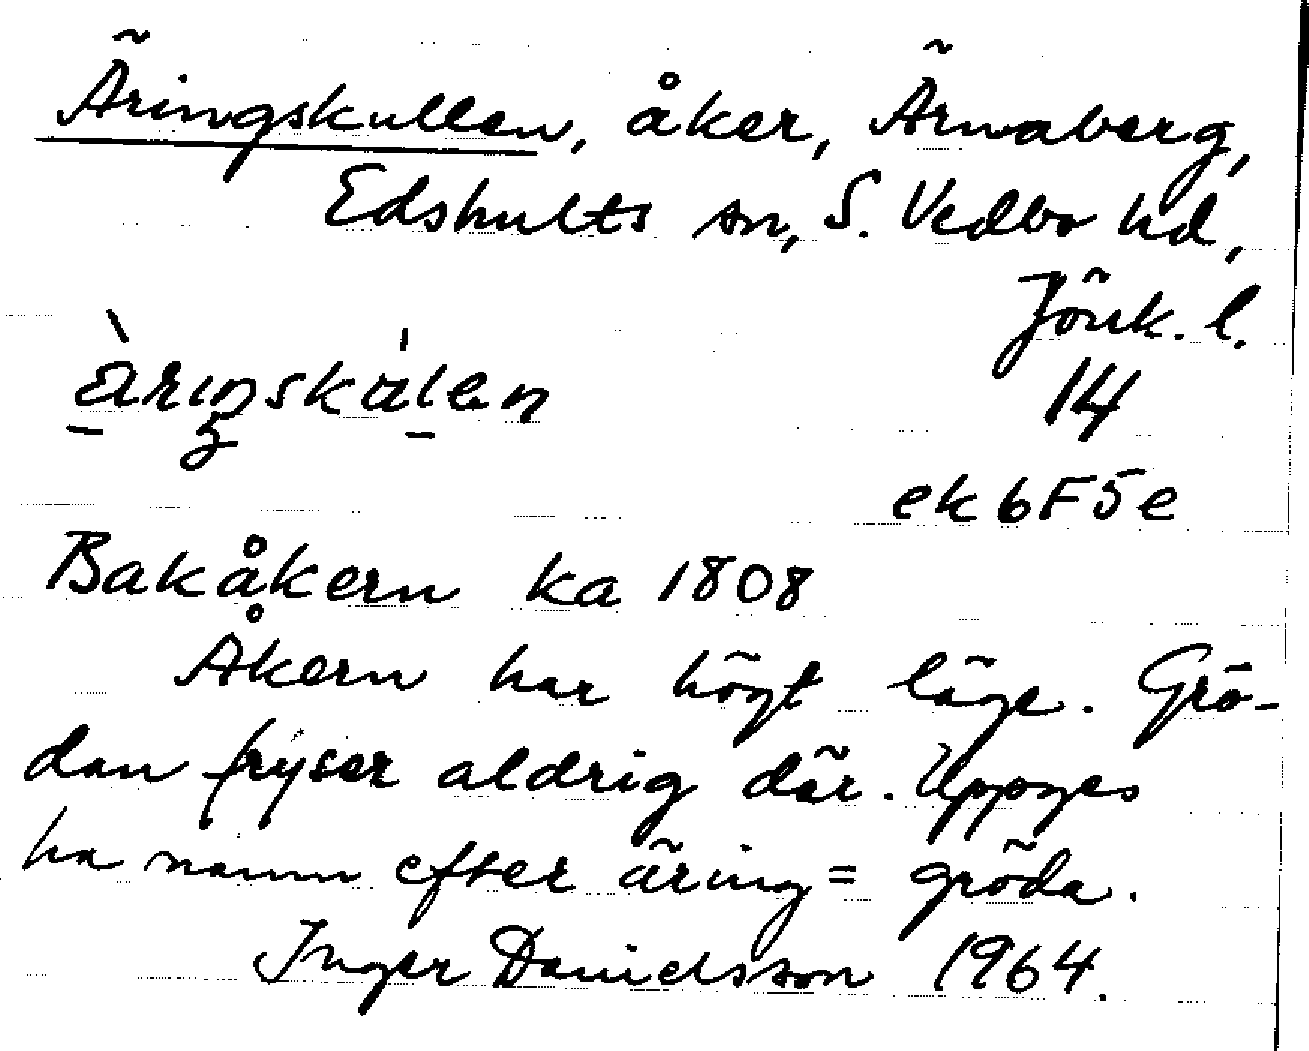 Äringskullen, åker, Ärnaberg,
Edshults sn, S. Vedbo hd,
Jönk. l.
14
ek 6F5e
Bakåkern ka 1808
Åkern har högt läge. Grö-
dan fryser aldrig där. Uppges
ha namn efter äring = gröda.
Inger Danielsson 1964.